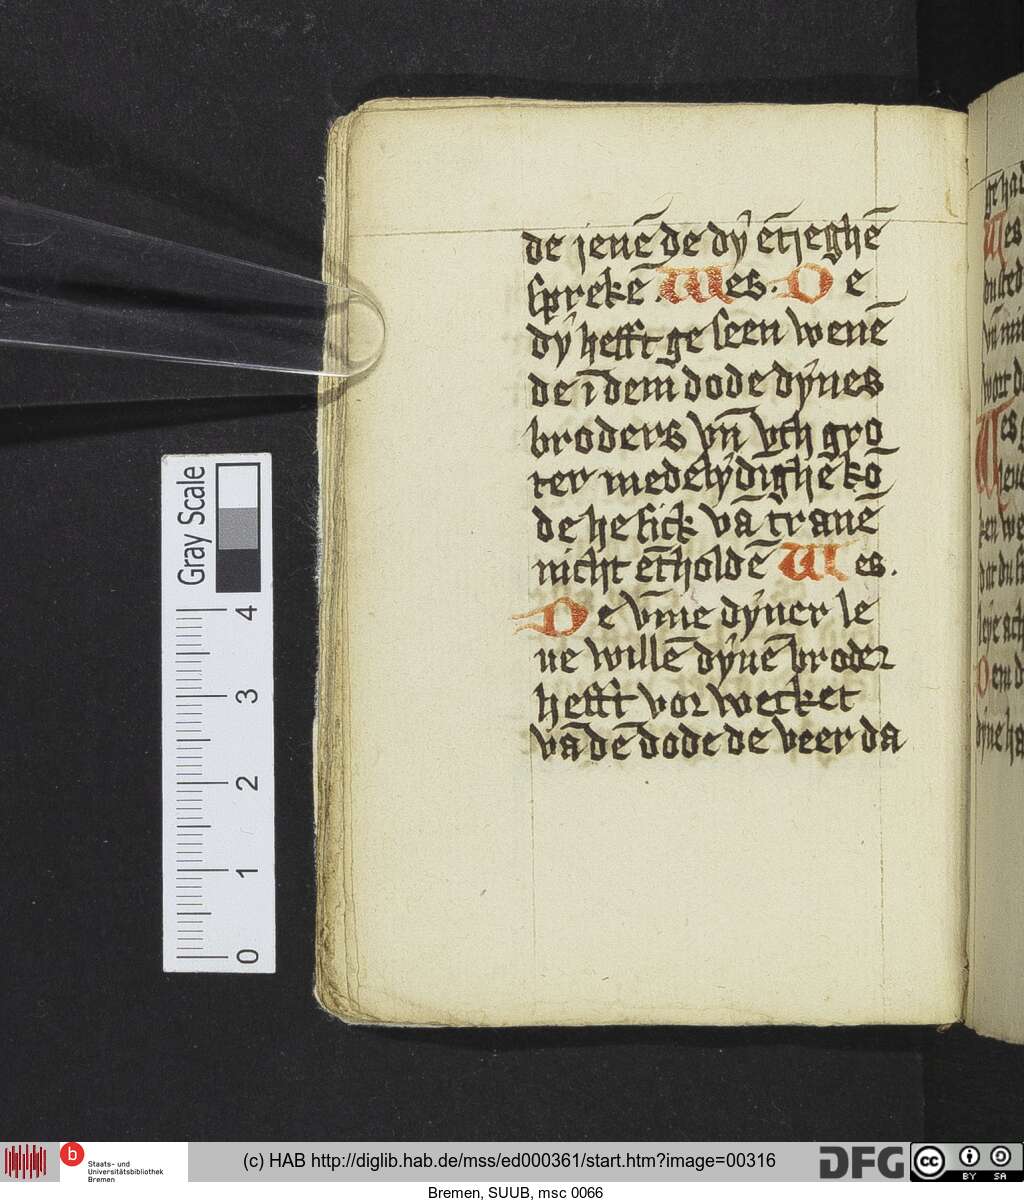 de jenē de dÿ ētjeghē
sprekē. Wes. De
dÿ hefft ge seen wenē
de ī dem dode dÿnes
broders vn̄ vth gro
ter medelÿdīghe kō
de he sick vā tranē
nicht ētholdē Wes.
De vm̄e dÿner le
ue willē dÿnē broder
hefft vor wecket
vā dē dode de veer da
Gray Scale
4
3
2
1
0
b
Staats- und
Universitätsbibliothek
Bremen
(c) HAB http://diglib.hab.de/mss/ed000361/start.htm?image=00316
DFG
cc
BY SA
Bremen, SUUB, msc 0066